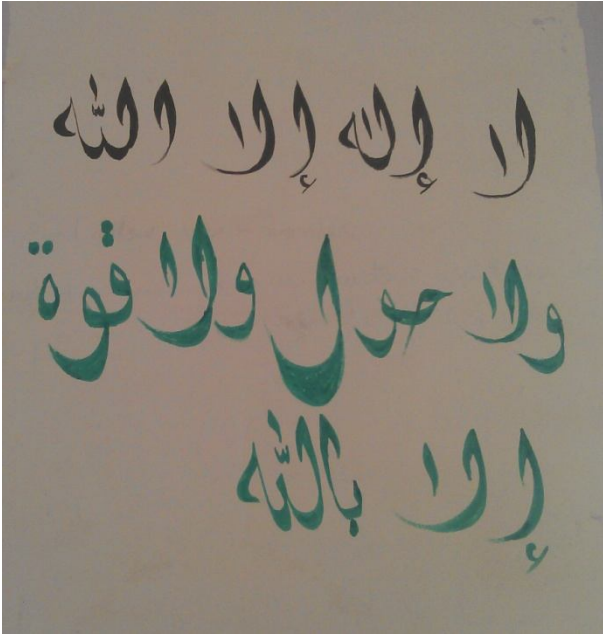 لا إله إلا الله
ولا حول ولا قوة
إلا بالله